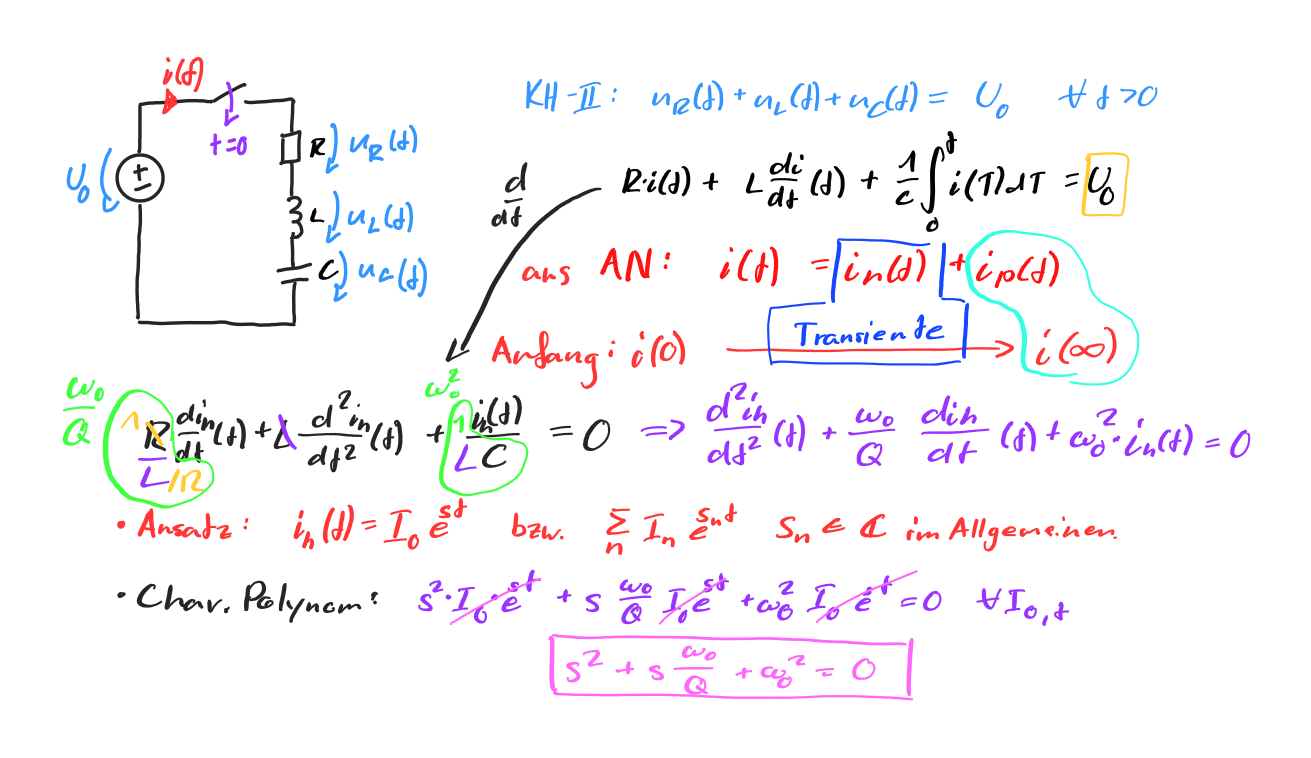 i(t)
t=0
U₀
R u_R(t)
L u_L(t)
C u_C(t)
KH-II: u_R(t) + u_L(t) + u_C(t) = U₀ ∀ t > 0
d/dt
R·i(t) + L di/dt (t) + 1/C ∫₀ᵗ i(T)dT = U₀
aus AN: i(t) = i_h(t) + i_p(t)
Transiente
Anfang: i(0) → i(∞)
ω₀/Q
ω₀²
R/L di_h/dt (t) + L d²i_h/dt² (t) + 1 i_h(t)/LC = 0 => d²i_h/dt² (t) + ω₀/Q di_h/dt (t) + ω₀²·i_h(t) = 0
• Ansatz: i_h(t) = I₀ e^{st} bzw. Σ_n I_n e^{s_n t} S_n ∈ ℂ im Allgemeinen.
• Char. Polynom: s²·I₀·e^{st} + s ω₀/Q I₀ e^{st} + ω₀² I₀ e^{st} = 0 ∀ I₀,t
s² + s ω₀/Q + ω₀² = 0